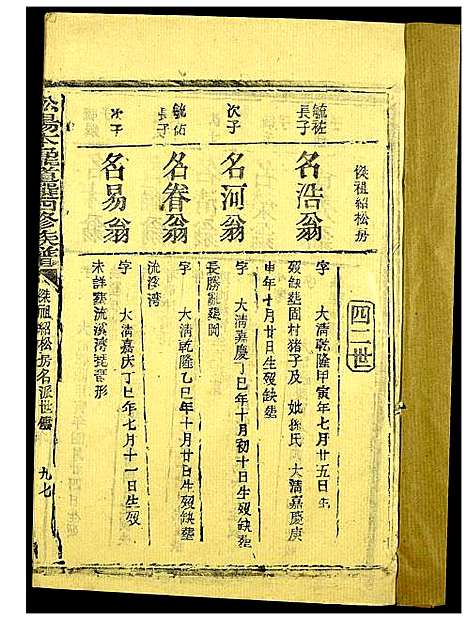 四二世
傑祖紹松房
毓祐長子
名浩翁
字 大清乾隆甲寅年七月廿五日生
歿缺塟固村猪子及 妣孫氏 大清嘉慶庚
申年十月廿日生歿缺塟
次子
名河翁
字 大清嘉慶丁巳年十月初十日生歿缺塟
長勝
毓佑長子
名眷翁
字 大清乾隆乙巳年十月廿日生歿缺塟
流溪湾
次子
名易翁
字 大清嘉庆丁巳年七月十一日生歿
未詳塟流溪湾琵琶形
松陽
修族譜
傑祖紹松房名派世鑑
九七